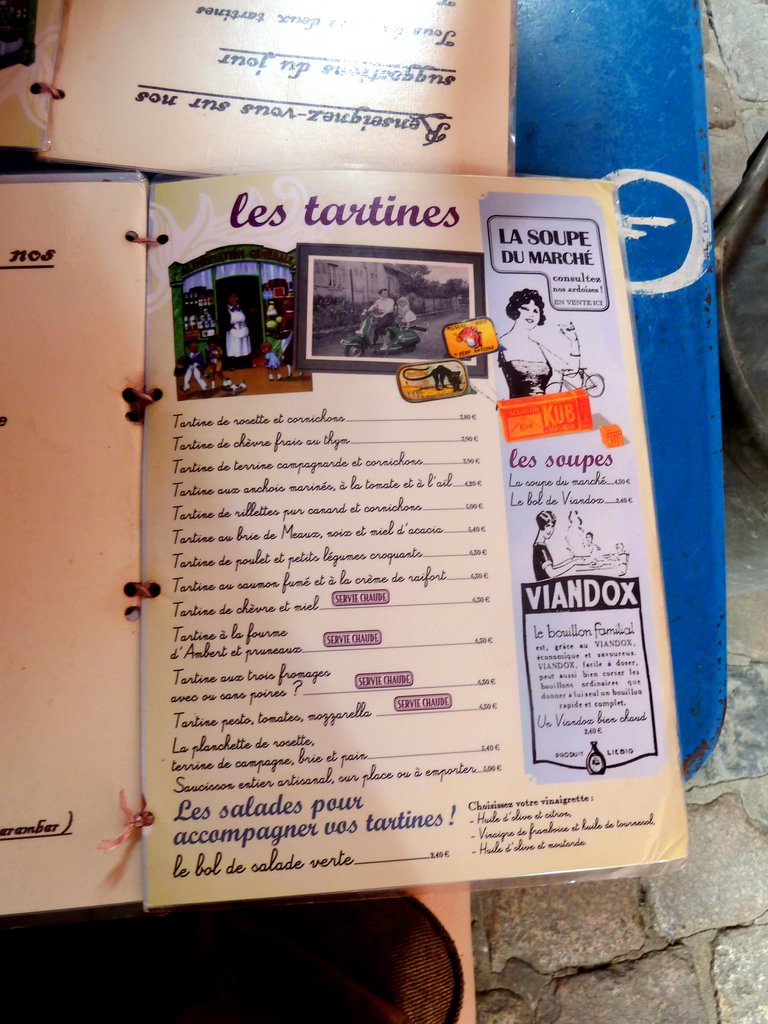 Tous les deux tartines
suggestions du jour
Renseignez-vous sur nos
nos
arambar)
les tartines
ALIMENTATION GÉNÉRALE
Tartine de rosette et cornichons 3,80 €
Tartine de chèvre frais au thym 3,90 €
Tartine de terrine campagnarde et cornichons 3,90 €
Tartine aux anchois marinés, à la tomate et à l'ail 4,20 €
Tartine de rillettes pur canard et cornichons 5,00 €
Tartine au brie de Meaux, noix et miel d'acacia 5,40 €
Tartine de poulet et petits légumes croquants 6,30 €
Tartine au saumon fumé et à la crème de raifort 6,50 €
Tartine de chèvre et miel SERVIE CHAUDE 6,50 €
Tartine à la fourme
d'Ambert et pruneaux SERVIE CHAUDE 6,50 €
Tartine aux trois fromages
avec ou sans poires ? SERVIE CHAUDE 6,50 €
Tartine pesto, tomates, mozzarella SERVIE CHAUDE 6,50 €
La planchette de rosette,
terrine de campagne, brie et pain 5,40 €
Saucisson entier artisanal, sur place ou à emporter 5,00 €
Les salades pour
accompagner vos tartines !
le bol de salade verte 2,40 €
Choisissez votre vinaigrette :
- Huile d'olive et citron,
- Vinaigre de framboise et huile de tournesol,
- Huile d'olive et moutarde.
LA SOUPE
DU MARCHÉ
consultez
nos ardoises !
EN VENTE ICI
BOUILLON KUB
KUB
les soupes
La soupe du marché 4,50 €
Le bol de Viandox 2,40 €
VIANDOX
le bouillon familial
est, grâce au VIANDOX,
économique et savoureux.
VIANDOX, facile à doser,
peut aussi bien corser les
bouillons ordinaires que
donner à lui seul un bouillon
rapide et complet.
Un Viandox bien chaud
2,40 €
PRODUIT LIEBIG